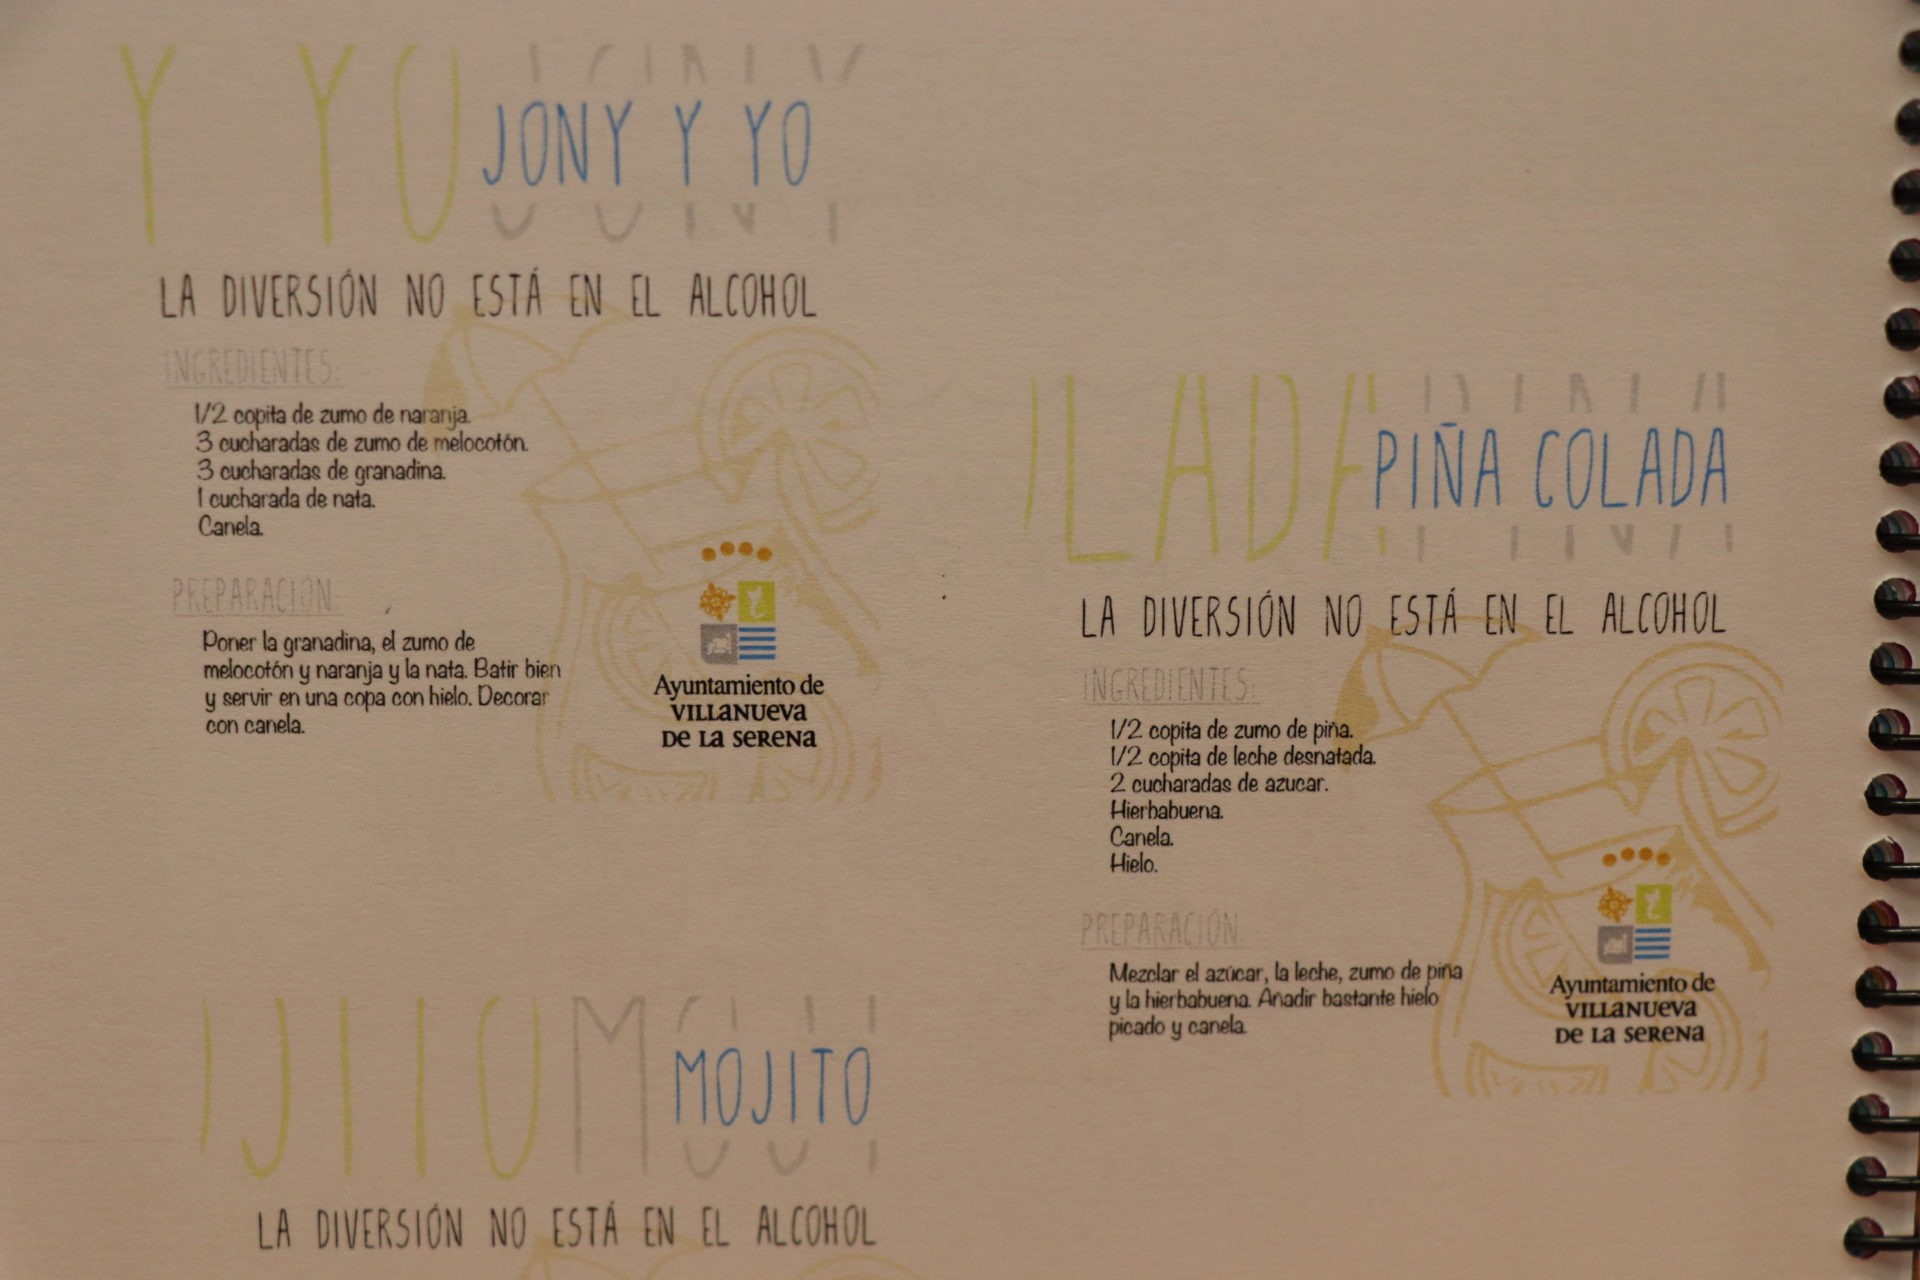 Y YO JONY
JONY Y YO
LA DIVERSIÓN NO ESTÁ EN EL ALCOHOL
INGREDIENTES:
1/2 copita de zumo de naranja.
3 cucharadas de zumo de melocotón.
3 cucharadas de granadina.
1 cucharada de nata.
Canela.
PREPARACIÓN:
Poner la granadina, el zumo de
melocotón y naranja y la nata. Batir bien
y servir en una copa con hielo. Decorar
con canela.
Ayuntamiento de
VILLANUEVA
DE LA SERENA
LADA PIÑA
PIÑA COLADA
LA DIVERSIÓN NO ESTÁ EN EL ALCOHOL
INGREDIENTES:
1/2 copita de zumo de piña.
1/2 copita de leche desnatada.
2 cucharadas de azucar.
Hierbabuena.
Canela.
Hielo.
PREPARACIÓN:
Mezclar el azúcar, la leche, zumo de piña
y la hierbabuena. Añadir bastante hielo
picado y canela.
Ayuntamiento de
VILLANUEVA
DE LA SERENA
JITO MOJI
MOJITO
LA DIVERSIÓN NO ESTÁ EN EL ALCOHOL